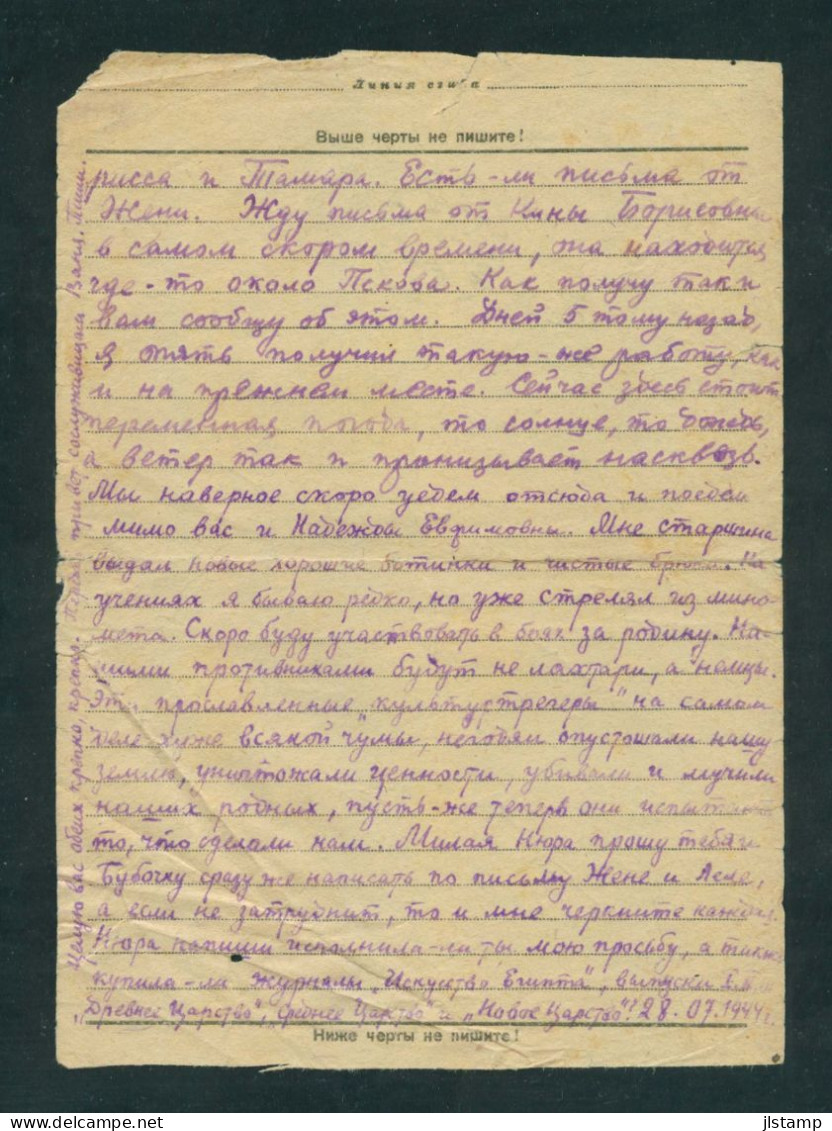 Линия сгиба
Выше черты не пишите!
рисса и Тамара. Есть-ли письма от
Жени. Жду письма от Кины Борисовны
в самом скором времени, та находится
где-то около Пскова. Как получу так и
вам сообщу об этом. Дней 5 тому назад,
я опять получил такую-же работу, как
и на прежнем месте. Сейчас здесь стоит
переменная погода, то солнце, то дождь,
а ветер так и пронизывает насквозь.
Мы наверное скоро уедем отсюда и поедем
мимо вас и Надежды Евфимовны. Мне старшина
выдал новые хорошие ботинки и чистые брюки. На
учениях я бываю редко, но уже стрелял из мино-
мета. Скоро буду участвовать в боях за родину. На-
шими противниками будут не лахтари, а немцы.
Эти прославленные „культуртрегеры" на самом
деле хуже всякой чумы, негодяи опустошали нашу
землю, уничтожали ценности, убивали и мучили
наших родных, пусть-же теперь они испытают
то, что сделали нам. Милая Нюра прошу тебя и
Бубочку сразу же написать по письму Жене и Леле,
а если не затруднит, то и мне черкните каждая.
Нюра напиши исполнила-ли ты мою просьбу, а также
купила-ли журналы „Искусство Египта", выпуски
„Древнее Царство", „Среднее Царство" и „Новое Царство"? 28.07.1944 г.
Ниже черты не пишите!
Целую вас обеих крепко, крепко. привет сослуживицам Ваш